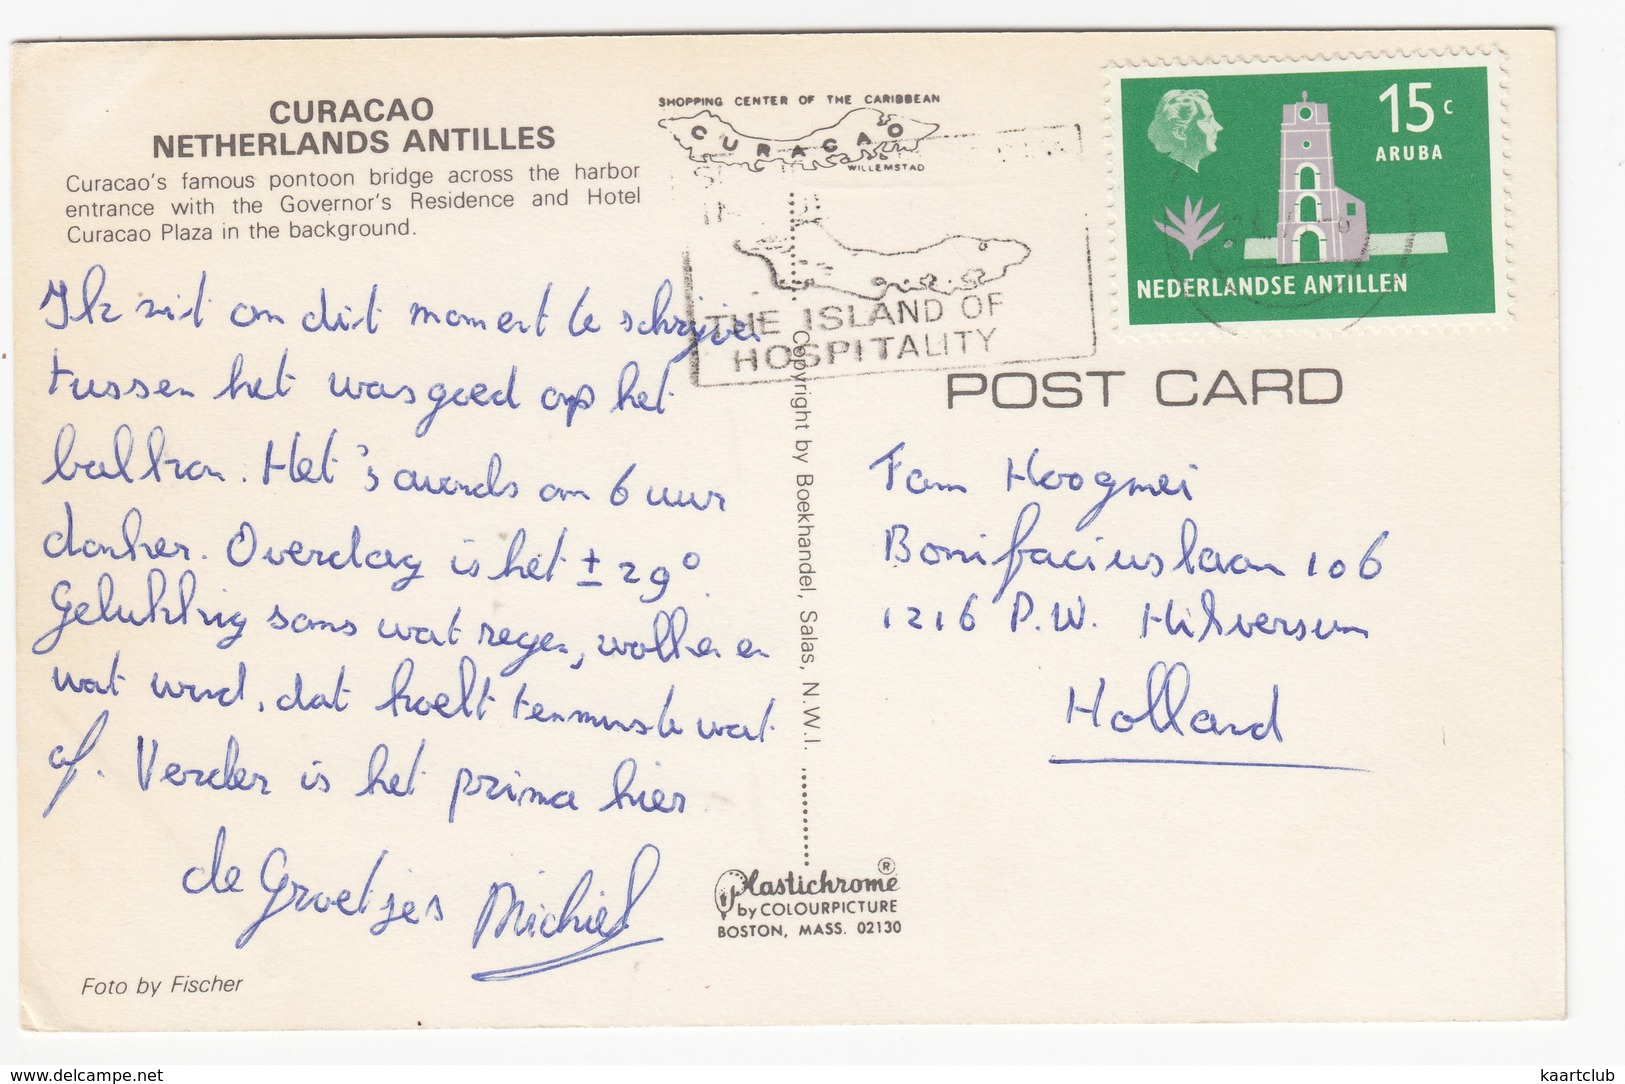 CURACAO
NETHERLANDS ANTILLES
Curacao's famous pontoon bridge across the harbor
entrance with the Governor's Residence and Hotel
Curacao Plaza in the background.
Ik zit om dit moment te schrijven
tussen het wasgoed op het
balkon. Het 's avonds om 6 uur
donker. Overdag is het ± 29°.
Gelukkig soms wat regen, wolken en
wat wind, dat koelt tenminste wat
af. Verder is het prima hier
de Groetjes Michiel
Foto by Fischer
SHOPPING CENTER OF THE CARIBBEAN
CURACAO
WILLEMSTAD
THE ISLAND OF
HOSPITALITY
Copyright by Boekhandel, Salas, N.W.I.
Plastichrome®
by COLOURPICTURE
BOSTON, MASS. 02130
15 c
ARUBA
NEDERLANDSE ANTILLEN
POST CARD
Fam Hoogmei
Bonifaciuslaan 106
1216 P.W. Hilversum
Holland
www.delcampe.net
kaartclub